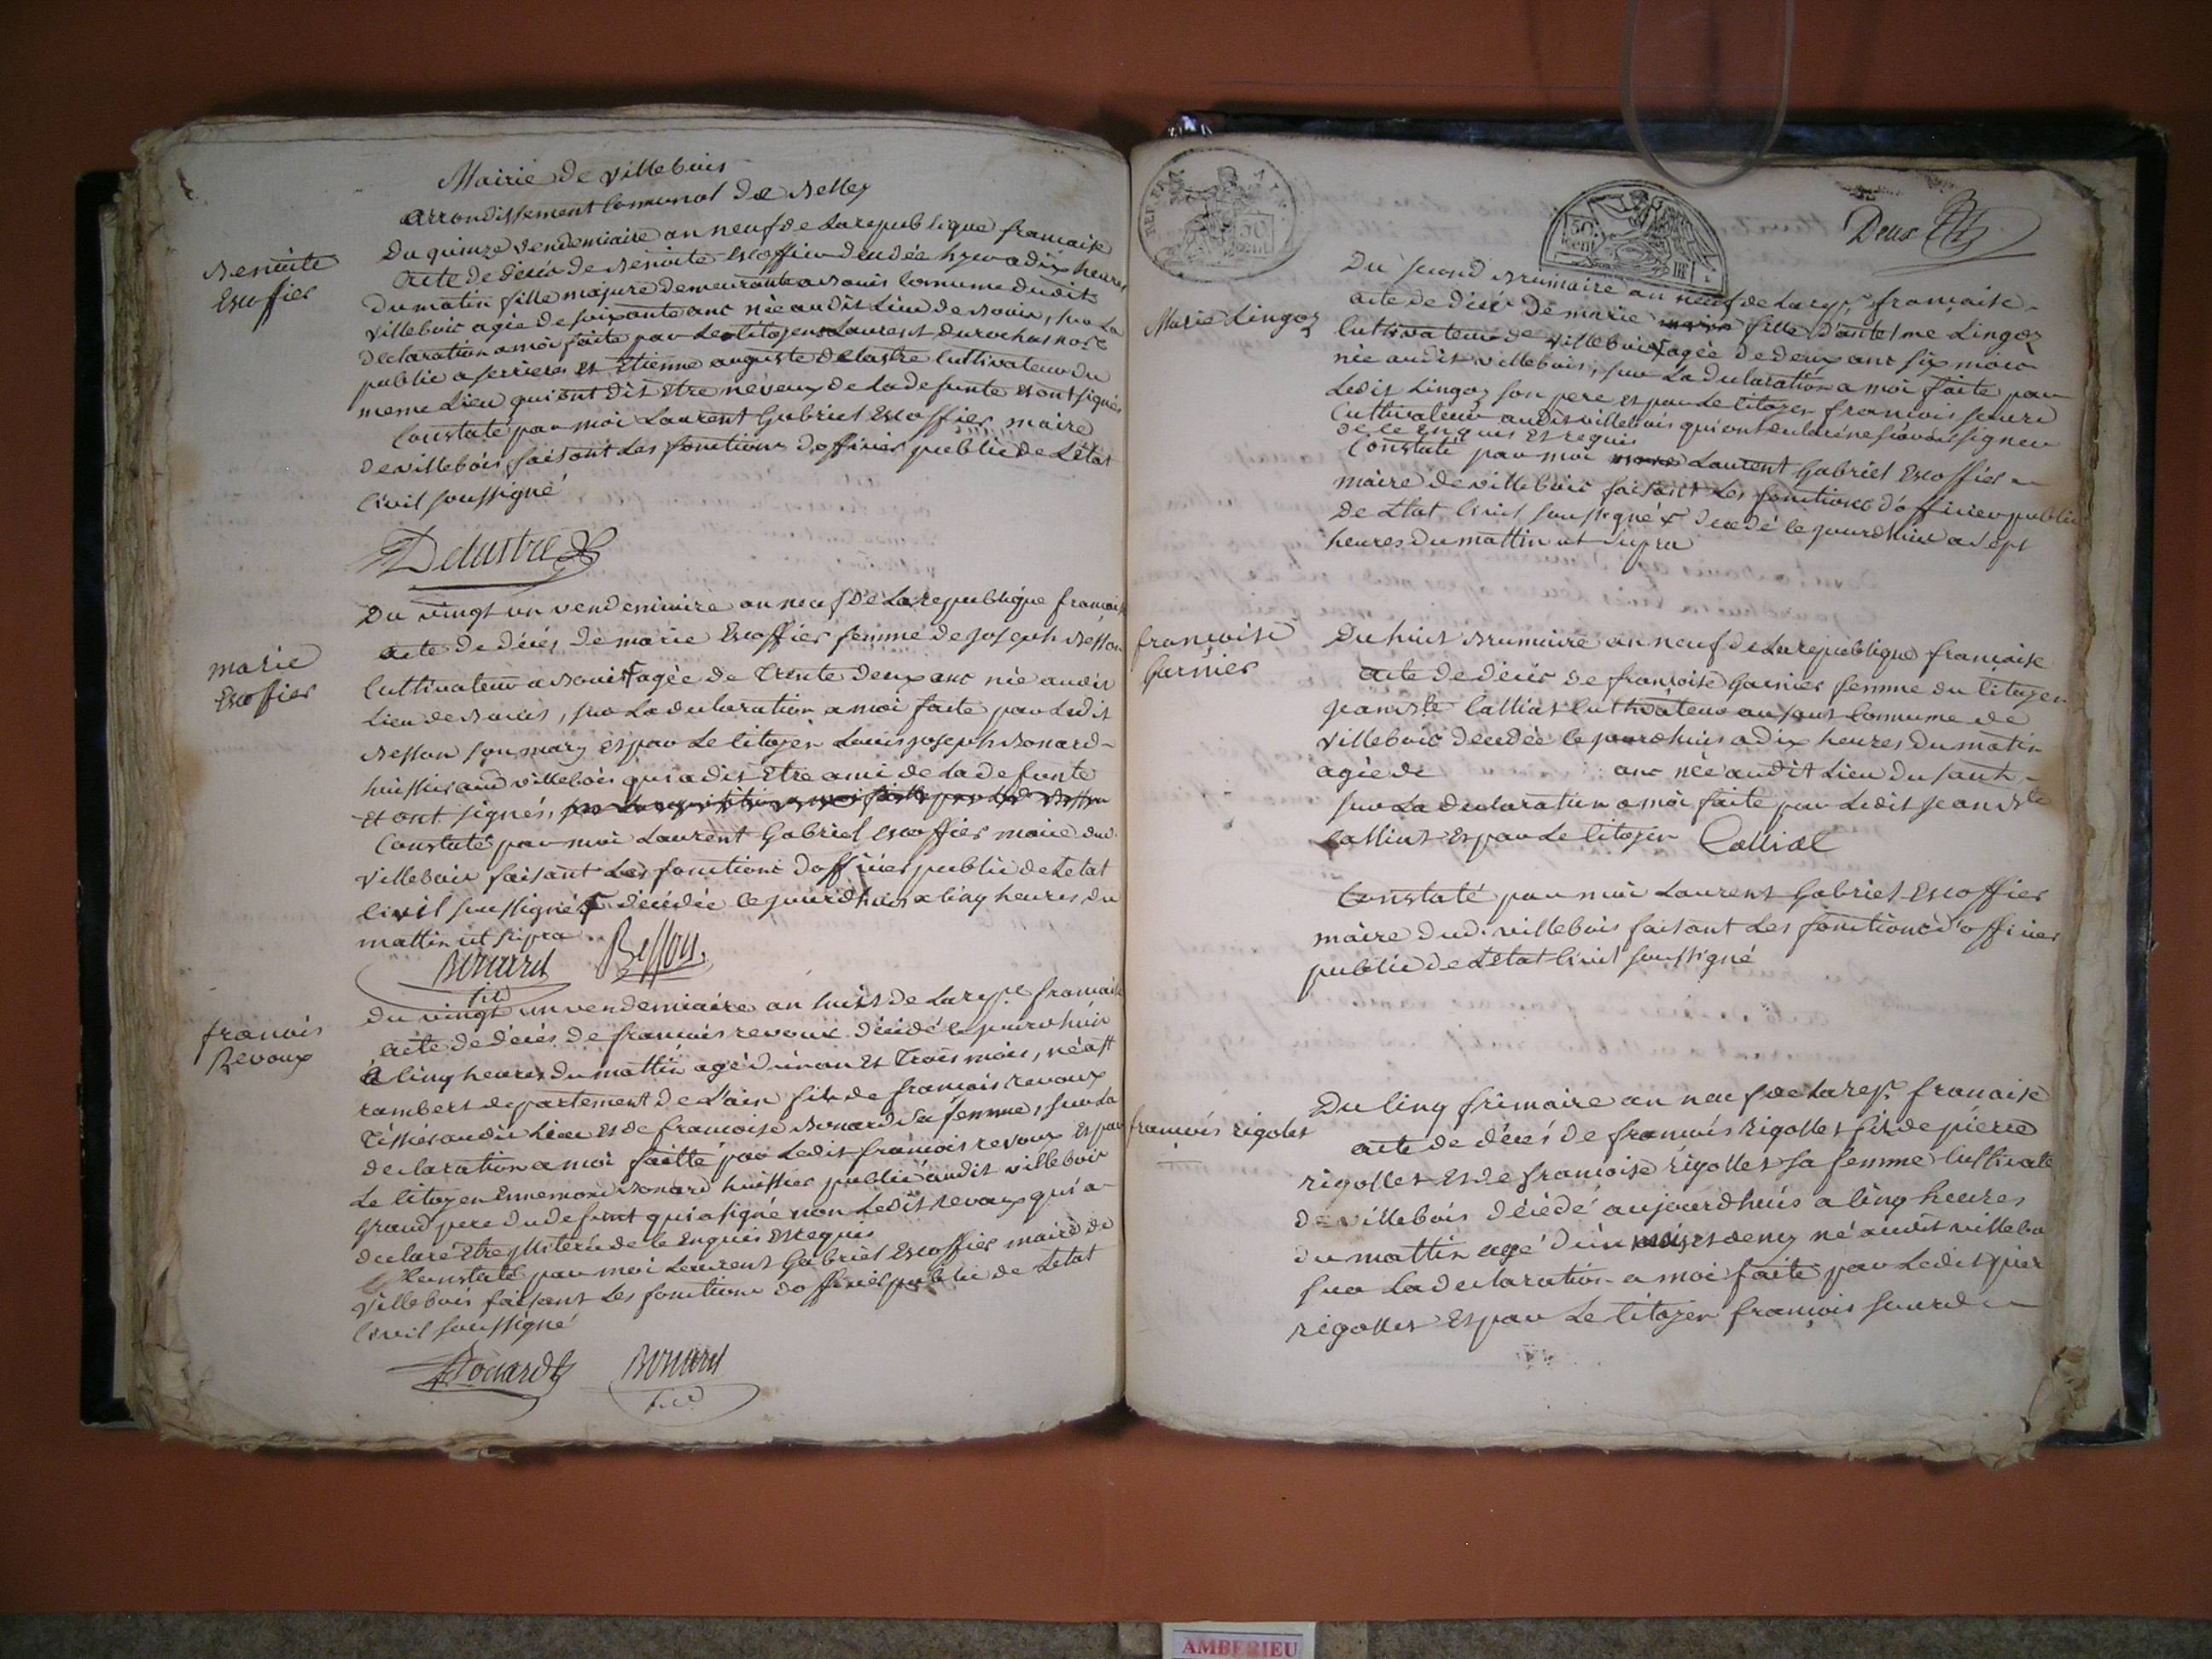 Mairie de villebois
arrondissement Comunal de Belley
Benoite
Escoffier
Du quinze vendemiaire an neuf de La republique francaise
Acte de décés de Benoite Escoffier decedée hyer a dix heures
Du matin fille majure demeurante a Bouis Commune dudit
villebois agée de soixante ans née audit Lieu de Bouis, sur La
Declaration a moi faite par Les Citoyens Laurent Durochas
public a serrieres et Etienne auguste Delastre Cultivateur du
meme Lieu qui ont dit Etre neveux de La defunte et ont signés
Constaté par moi Laurent Gabriel Escoffier maire
de villebois faisant Les fonctions d'officier public de L'état
Civil soussigné
Delastre
marie
Escoffier
Du vingt un vendemiaire an neuf De La republique francaise
acte de décés de marie Escoffier femme de joseph Besson
Cultivateur a Bouis agée de trente deux ans née audit
Lieu de Bouis, sur La declaration a moi faite par Ledit
Besson son mary et par Le Citoyen Louis joseph Bonard
huissier aud villebois qui a dit Etre ami de La defunte
et ont signés,
Constaté par moi Laurent Gabriel Escoffier maire dud.
villebois faisant Les fonctions d'officier public de L'etat
Civil soussigné decédée ce jourdhuis a Cinq heures du
mattin ut supra
Bonard Besson
fils
francois
Revoux
du vingt un vendemiaire an huit de La rep.e francaise
acte de décés de francois revoux décédé ce jourdhuis
à Cinq heures du mattin agé d'un an et trois mois, né a st
rambert departement de L'ain fils de francois revoux
tessier audit Lieu et de francoise Bonard sa femme, sur La
declaration a moi faitte par Ledit francois revoux et par
Le Citoyen Ennemond Bonard huissier public audit villebois
grand pere du defunt qui a signé non Ledit revoux qui a
declaré Etre de Ce Enquis et requis
Constaté par moi Laurent Gabriel Escoffier maire de
villebois faisant Les fonctions d'officier public de L'etat
Civil soussigné
Bonard Bonard
fils
REP. FRA.
50
cent
50
cent
Deux
Marie Lingoz
Du second Brumaire an neuf de La rep.e française
acte de décés De marie fille d'antelme Lingoz
Cultivateur de villebois agée de deux ans six mois
née audit villebois, sur La declaration a moi faite par
Ledit Lingoz son pere et par Le Citoyen francois sourd
Cultivateur audit villebois qui ont declaré ne sçavoir signer
de Ce enquis Et requis
Constaté par moi Laurent Gabriel Escoffier
maire de villebois faisant Les fonctions d'officier public
de L'etat Civil soussigné decedé ce jourdhuis a sept
heures du mattin ut supra
francoise
Garnier
Du huit Brumaire an neuf de La republique francaise
acte de décés de francoise Garnier femme du Citoyen
jean Bte Calliat Cultivateur au saut Commune de
villebois decedée ce jourdhuis a dix heures du matin
agée de ans née audit Lieu du saut
sur La declaration a moi faite par Ledit jean Bte
Calliat et par Le Citoyen Calliat
Constaté par moi Laurent Gabriel Escoffier
maire dud. villebois faisant Les fonctions d'officier
public de L'etat Civil soussigné
francois rigolet
Du Cinq frimaire an neuf de La rep.e francaise
acte de décés de francois rigollet fils de pierre
rigollet et de francoise rigollet sa femme Cultivate
de villebois décédé aujourdhuis a Cinq heures
du mattin agé d'un né audit villebo
sur La declaration a moi faite par Ledit pier
rigollet et par Le Citoyen françois sourd
AMBERIEU